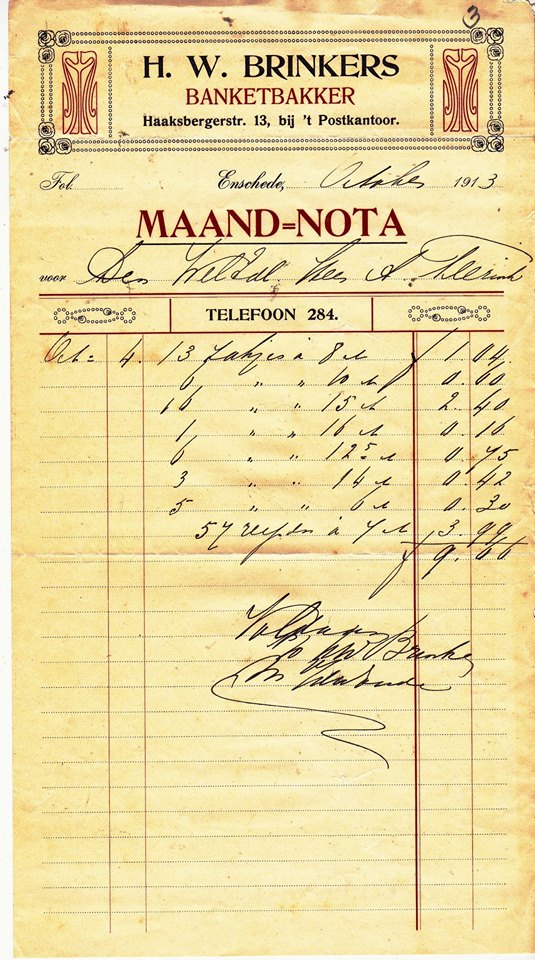 3
H. W. BRINKERS
BANKETBAKKER
Haaksbergerstr. 13, bij 't Postkantoor.
Fol. Enschede, October 1913
MAAND=NOTA
voor Den Weled. Heer A.
TELEFOON 284.
Oct= 4. 13 zakjes à 8 ct f 1.04.
6 " " 10 ct 0.60
16 " " 15 ct 2.40
1 " " 16 ct 0.16
6 " " 12⁵ ct 0.75
3 " " 14 ct 0.42
5 " " 6 ct 0.30
57 à 7 ct 3.99
f 9.66
Voldaan
HW Brinkers
Enschede